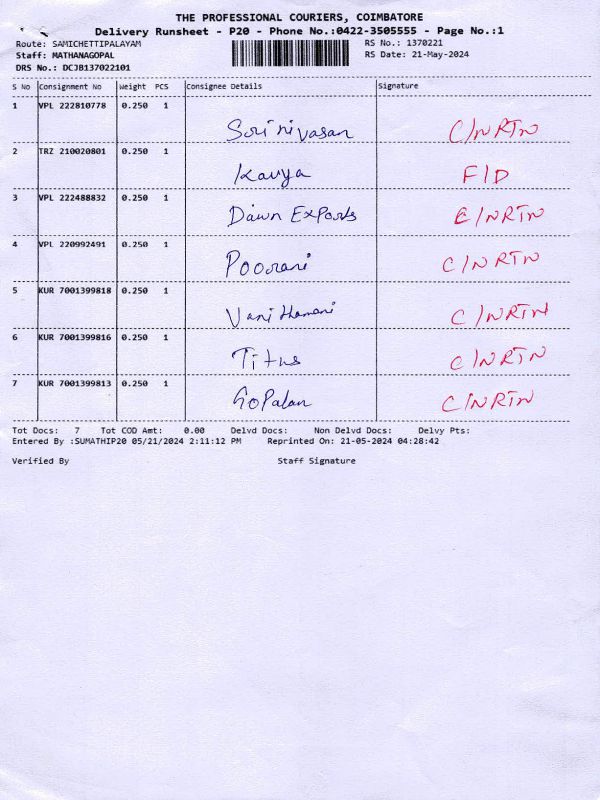 THE PROFESSIONAL COURIERS, COIMBATORE
Delivery Runsheet - P20 - Phone No.:0422-3505555 - Page No.:1
Route: SAMICHETTIPALAYAM RS No.: 1370221
Staff: MATHANAGOPAL RS Date: 21-May-2024
DRS No.: DCJB137022101
S No Consignment No Weight PCS Consignee Details Signature
1 VPL 222810778 0.250 1
Sri nivasan C/NRTN
2 TRZ 210020801 0.250 1
Kavya F/D
3 VPL 222488832 0.250 1
Dawn Exports C/NRTN
4 VPL 220992491 0.250 1
Poorani C/NRTN
5 KUR 7001399818 0.250 1
Vanithamani C/NRTN
6 KUR 7001399816 0.250 1
Titus C/NRTN
7 KUR 7001399813 0.250 1
Gopalan C/NRTN
Tot Docs: 7 Tot COD Amt: 0.00 Delvd Docs: Non Delvd Docs: Delvy Pts:
Entered By :SUMATHIP20 05/21/2024 2:11:12 PM Reprinted On: 21-05-2024 04:28:42
Verified By Staff Signature